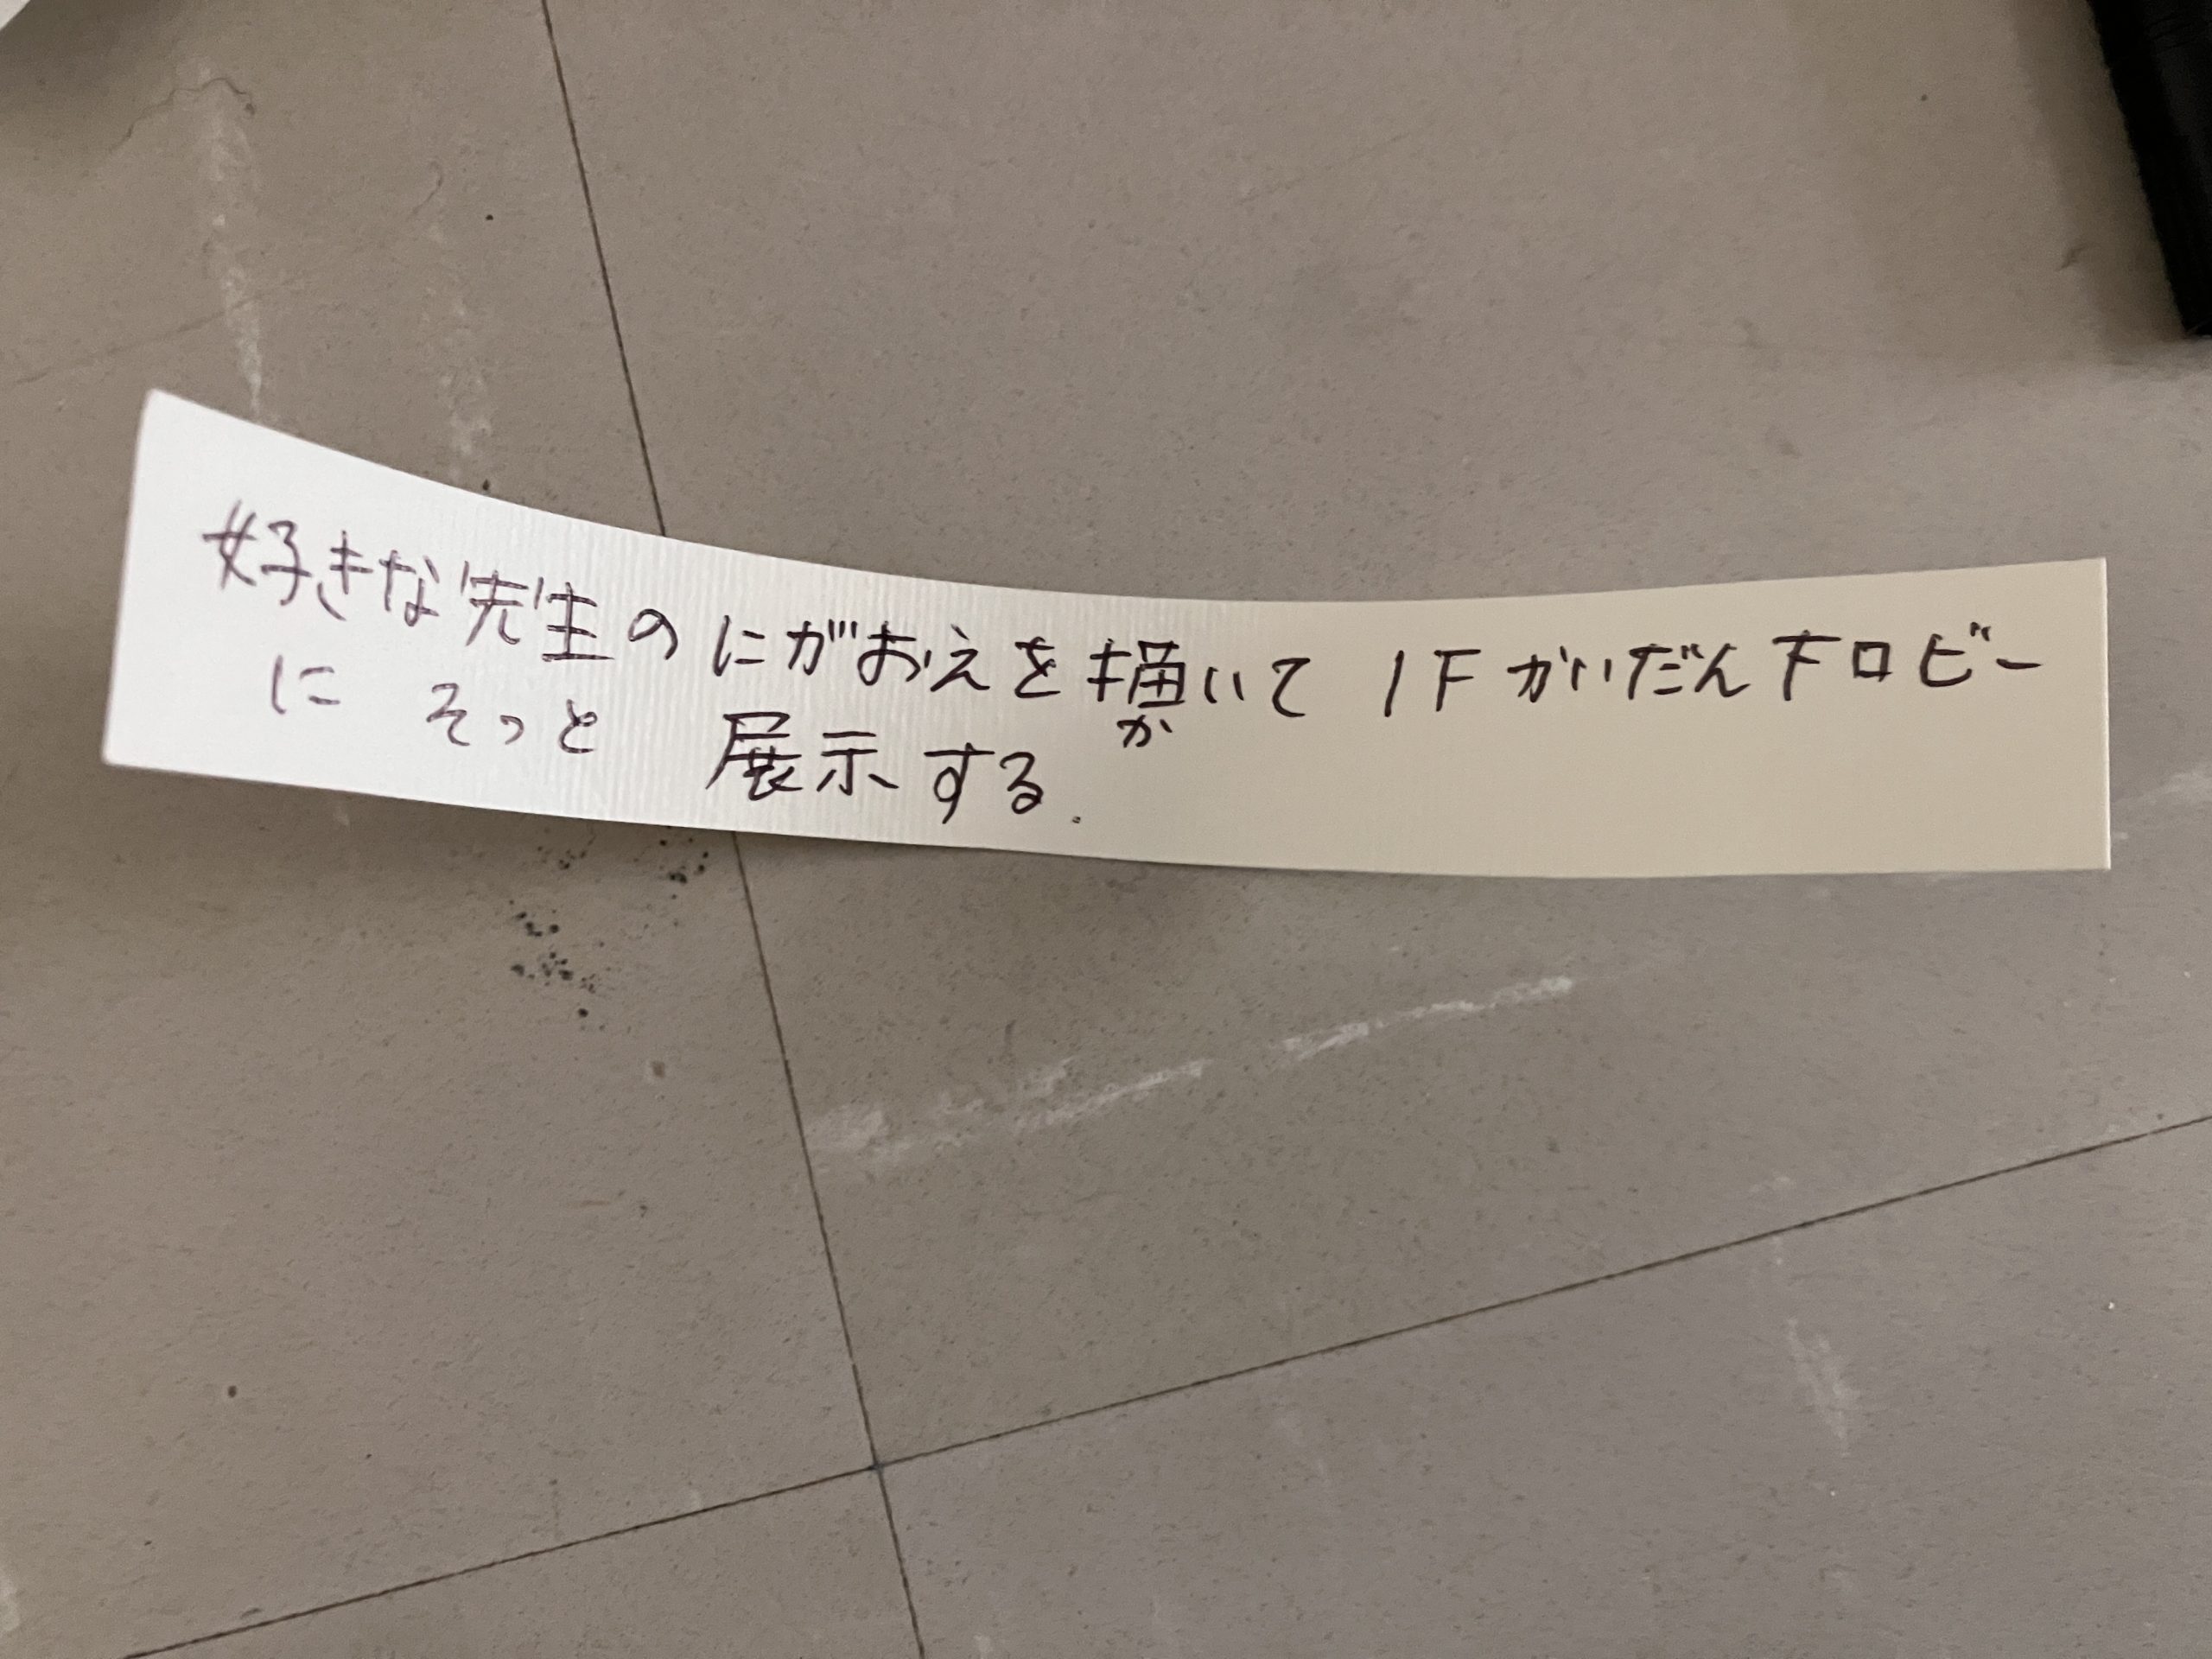 好きな先生のにがおえを描いて 1Fかいだん下ロビー
か
に そっと 展示する.